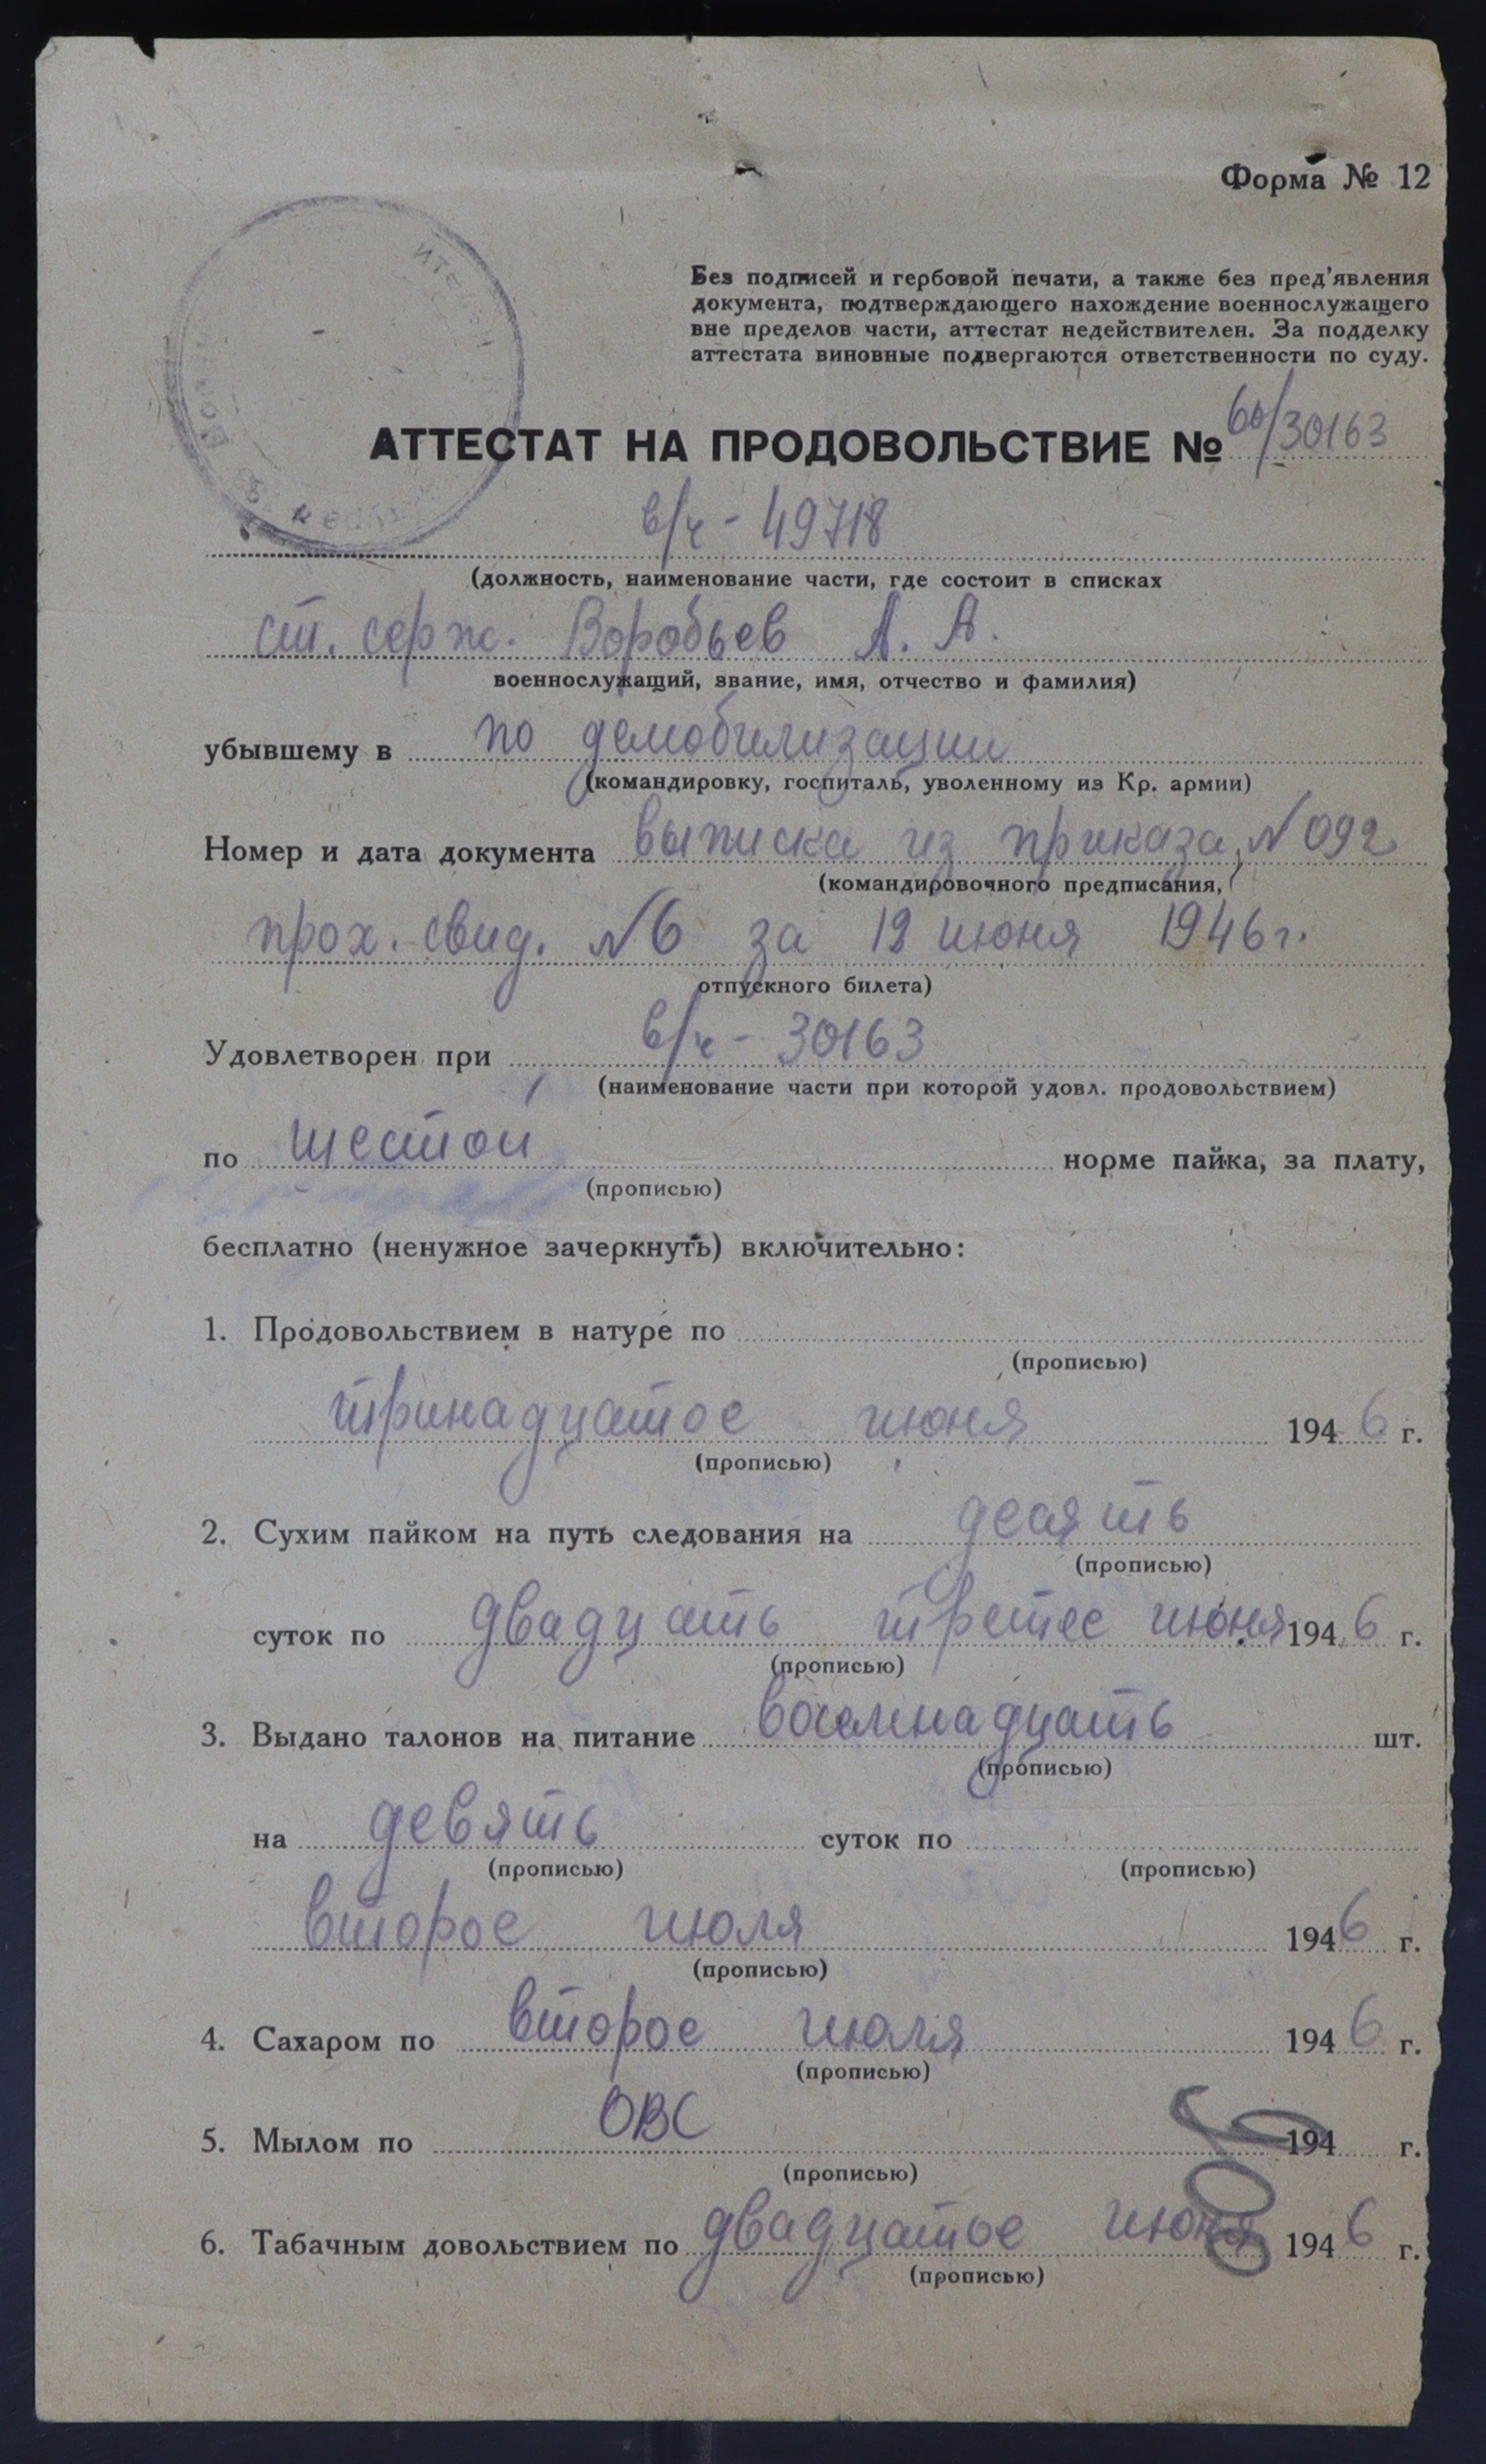 Форма № 12
Без подписей и гербовой печати, а также без пред'явления
документа, подтверждающего нахождение военнослужащего
вне пределов части, аттестат недействителен. За подделку
аттестата виновные подвергаются ответственности по суду.
АТТЕСТАТ НА ПРОДОВОЛЬСТВИЕ № 60/30163
в/ч - 49718
(должность, наименование части, где состоит в списках
ст. серж. Воробьев А. А.
военнослужащий, звание, имя, отчество и фамилия)
убывшему в по демобилизации
(командировку, госпиталь, уволенному из Кр. армии)
Номер и дата документа выписка из приказа, № 092
(командировочного предписания,
прох. свид. № 6 за 12 июня 1946 г.
отпускного билета)
Удовлетворен при в/ч - 30163
(наименование части при которой удовл. продовольствием)
по шестой норме пайка, за плату,
(прописью)
бесплатно (ненужное зачеркнуть) включительно:
1. Продовольствием в натуре по
(прописью)
тринадцатое июня 1946 г.
(прописью)
2. Сухим пайком на путь следования на десять
(прописью)
суток по двадцать третее июня 1946 г.
(прописью)
3. Выдано талонов на питание восемнадцать шт.
(прописью)
на девять суток по
(прописью) (прописью)
второе июля 1946 г.
(прописью)
4. Сахаром по второе июля 1946 г.
(прописью)
5. Мылом по ОВС 194 г.
(прописью)
6. Табачным довольствием по двадцатое июня 1946 г.
(прописью)